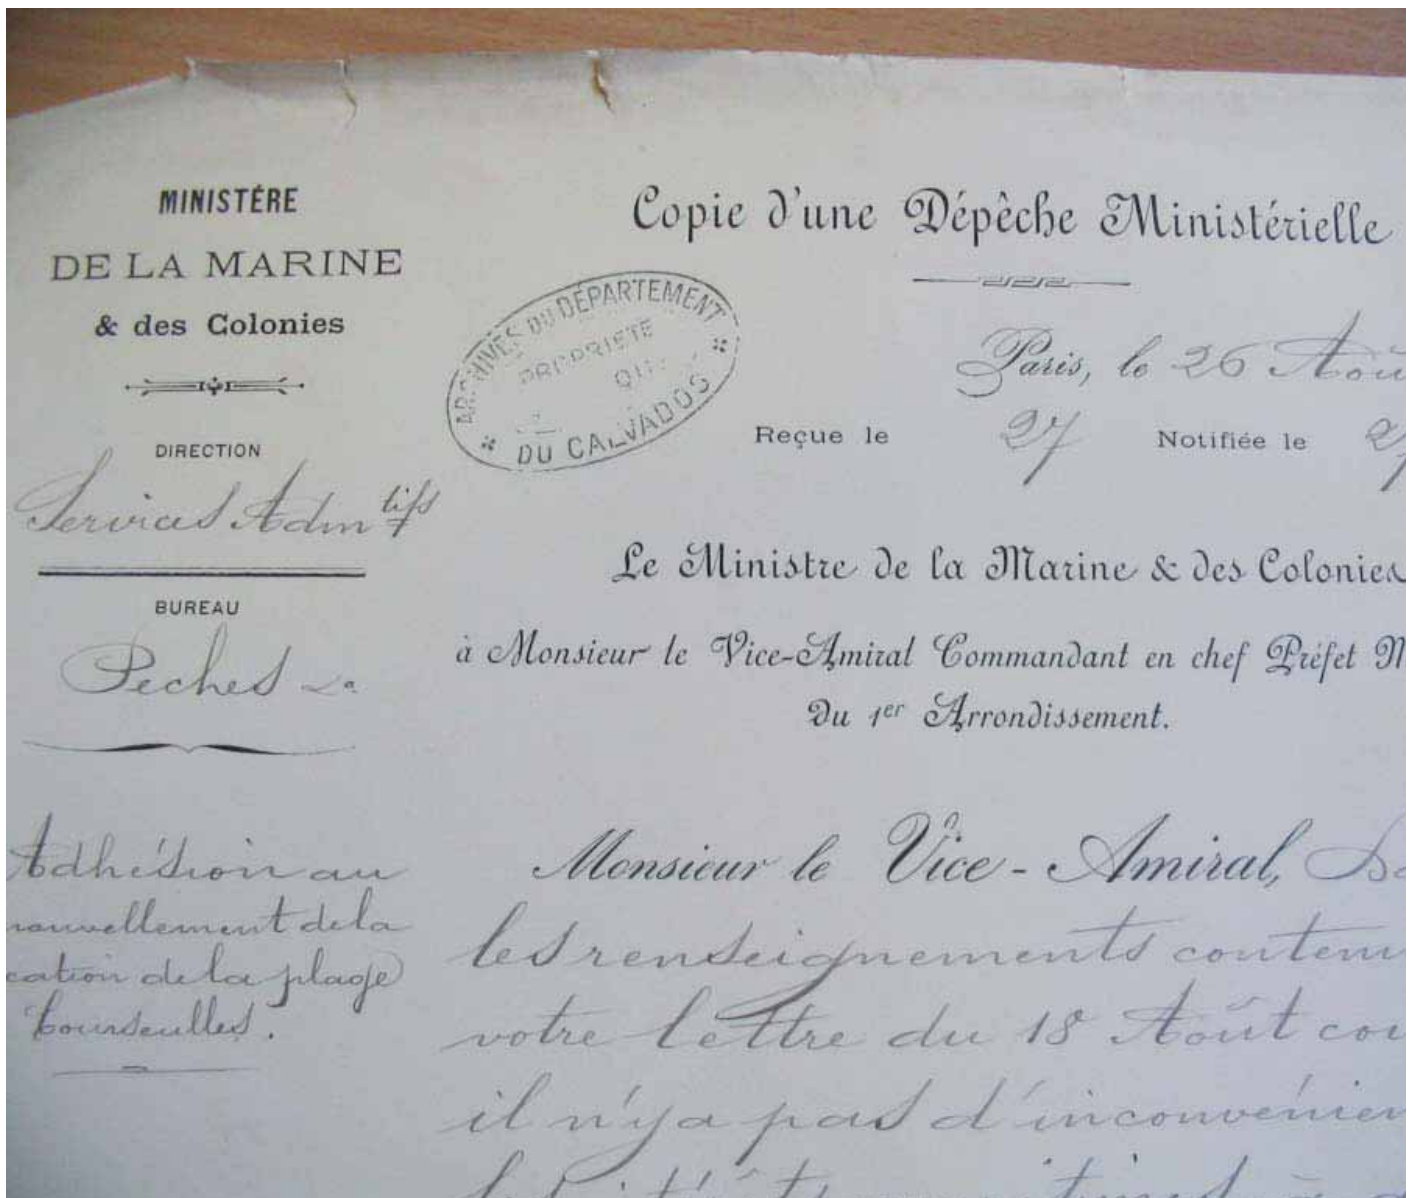 MINISTÉRE
DE LA MARINE
& des Colonies
DIRECTION
Services Adm tifs
BUREAU
Pêches
Adhésion au
nouvellement de la
cation de la plage
Courseulles.
Copie d'une Dépêche Ministérielle
ARCHIVES DU DÉPARTEMENT
PROPRIETE
DU CALVADOS
Paris, le 26 Aoû
Reçue le 27 Notifiée le
Le Ministre de la Marine & des Colonies
à Monsieur le Vice-Amiral Commandant en chef Préfet M
Du 1er Arrondissement.
Monsieur le Vice-Amiral,
les renseignements contenu
votre lettre du 18 Août cou
il n'y a pas d'inconvénien